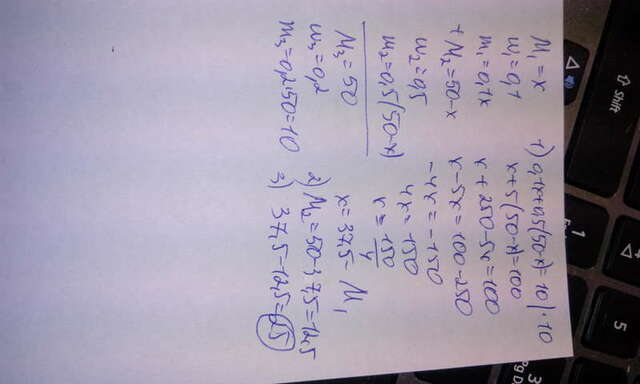 M₁ = x
w₁ = 0,1
m₁ = 0,1x
+ M₂ = 50-x
w₂ = 0,5
m₂ = 0,5(50-x)
M₃ = 50
w₃ = 0,2
m₃ = 0,2·50 = 10
1) 0,1x+0,5(50-x) = 10 |·10
x+5(50-x) = 100
x+250-5x = 100
x-5x = 100-250
-4x = -150
4x = 150
x = 150/4
x = 37,5 - M₁
2) M₂ = 50-37,5 = 12,5
3) 37,5-12,5 = 25
Shift
1
5
3
Pg D